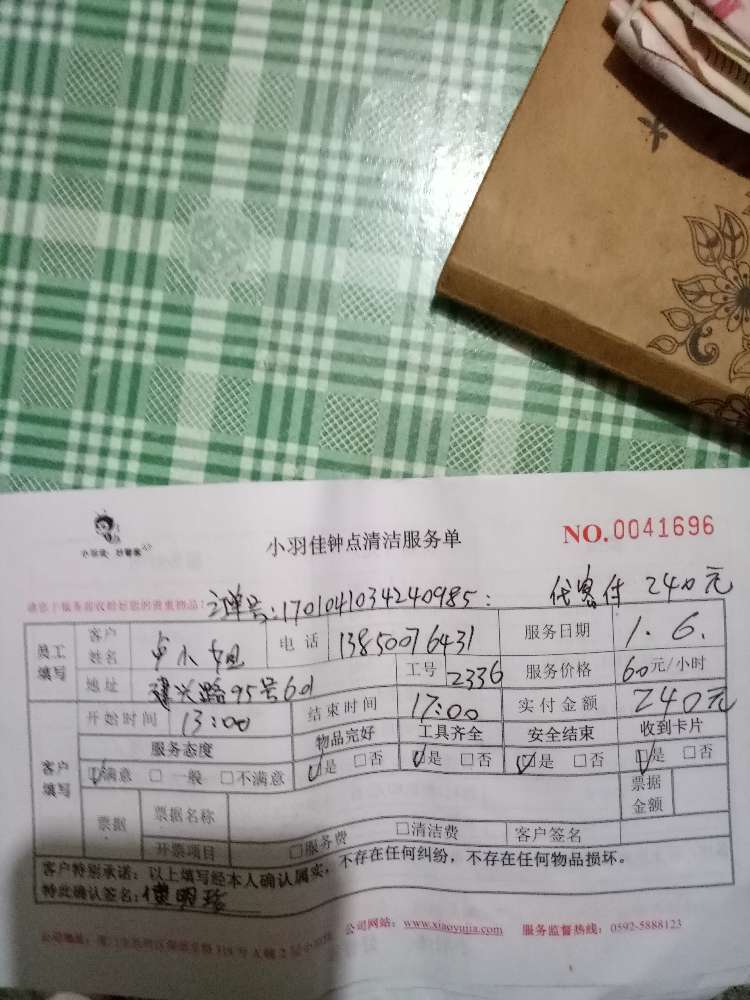 小羽佳钟点清洁服务单
NO.0041696
请您于服务前收好您的贵重物品!
订单号:1701041034240985: 代客付 240元
员工填写 客户姓名 卓小姐 电话 13850076431 服务日期 1.6.
地址 建兴路95号601 工号 2336 服务价格 60元/小时
客户填写 开始时间 13:00 结束时间 17:00 实付金额 240元
服务态度 物品完好 工具齐全 安全结束 收到卡片
☑满意 □一般 □不满意 ☑是 □否 ☑是 □否 ☑是 □否 ☑是 □否
票据 票据名称 票据金额
开票项目 □服务费 □清洁费 客户签名
客户特别承诺:以上填写经本人确认属实,不存在任何纠纷,不存在任何物品损坏。
特此确认签名:
公司网站:www.xiaoyujia.com 服务监督热线:0592-5888123
公司地址: